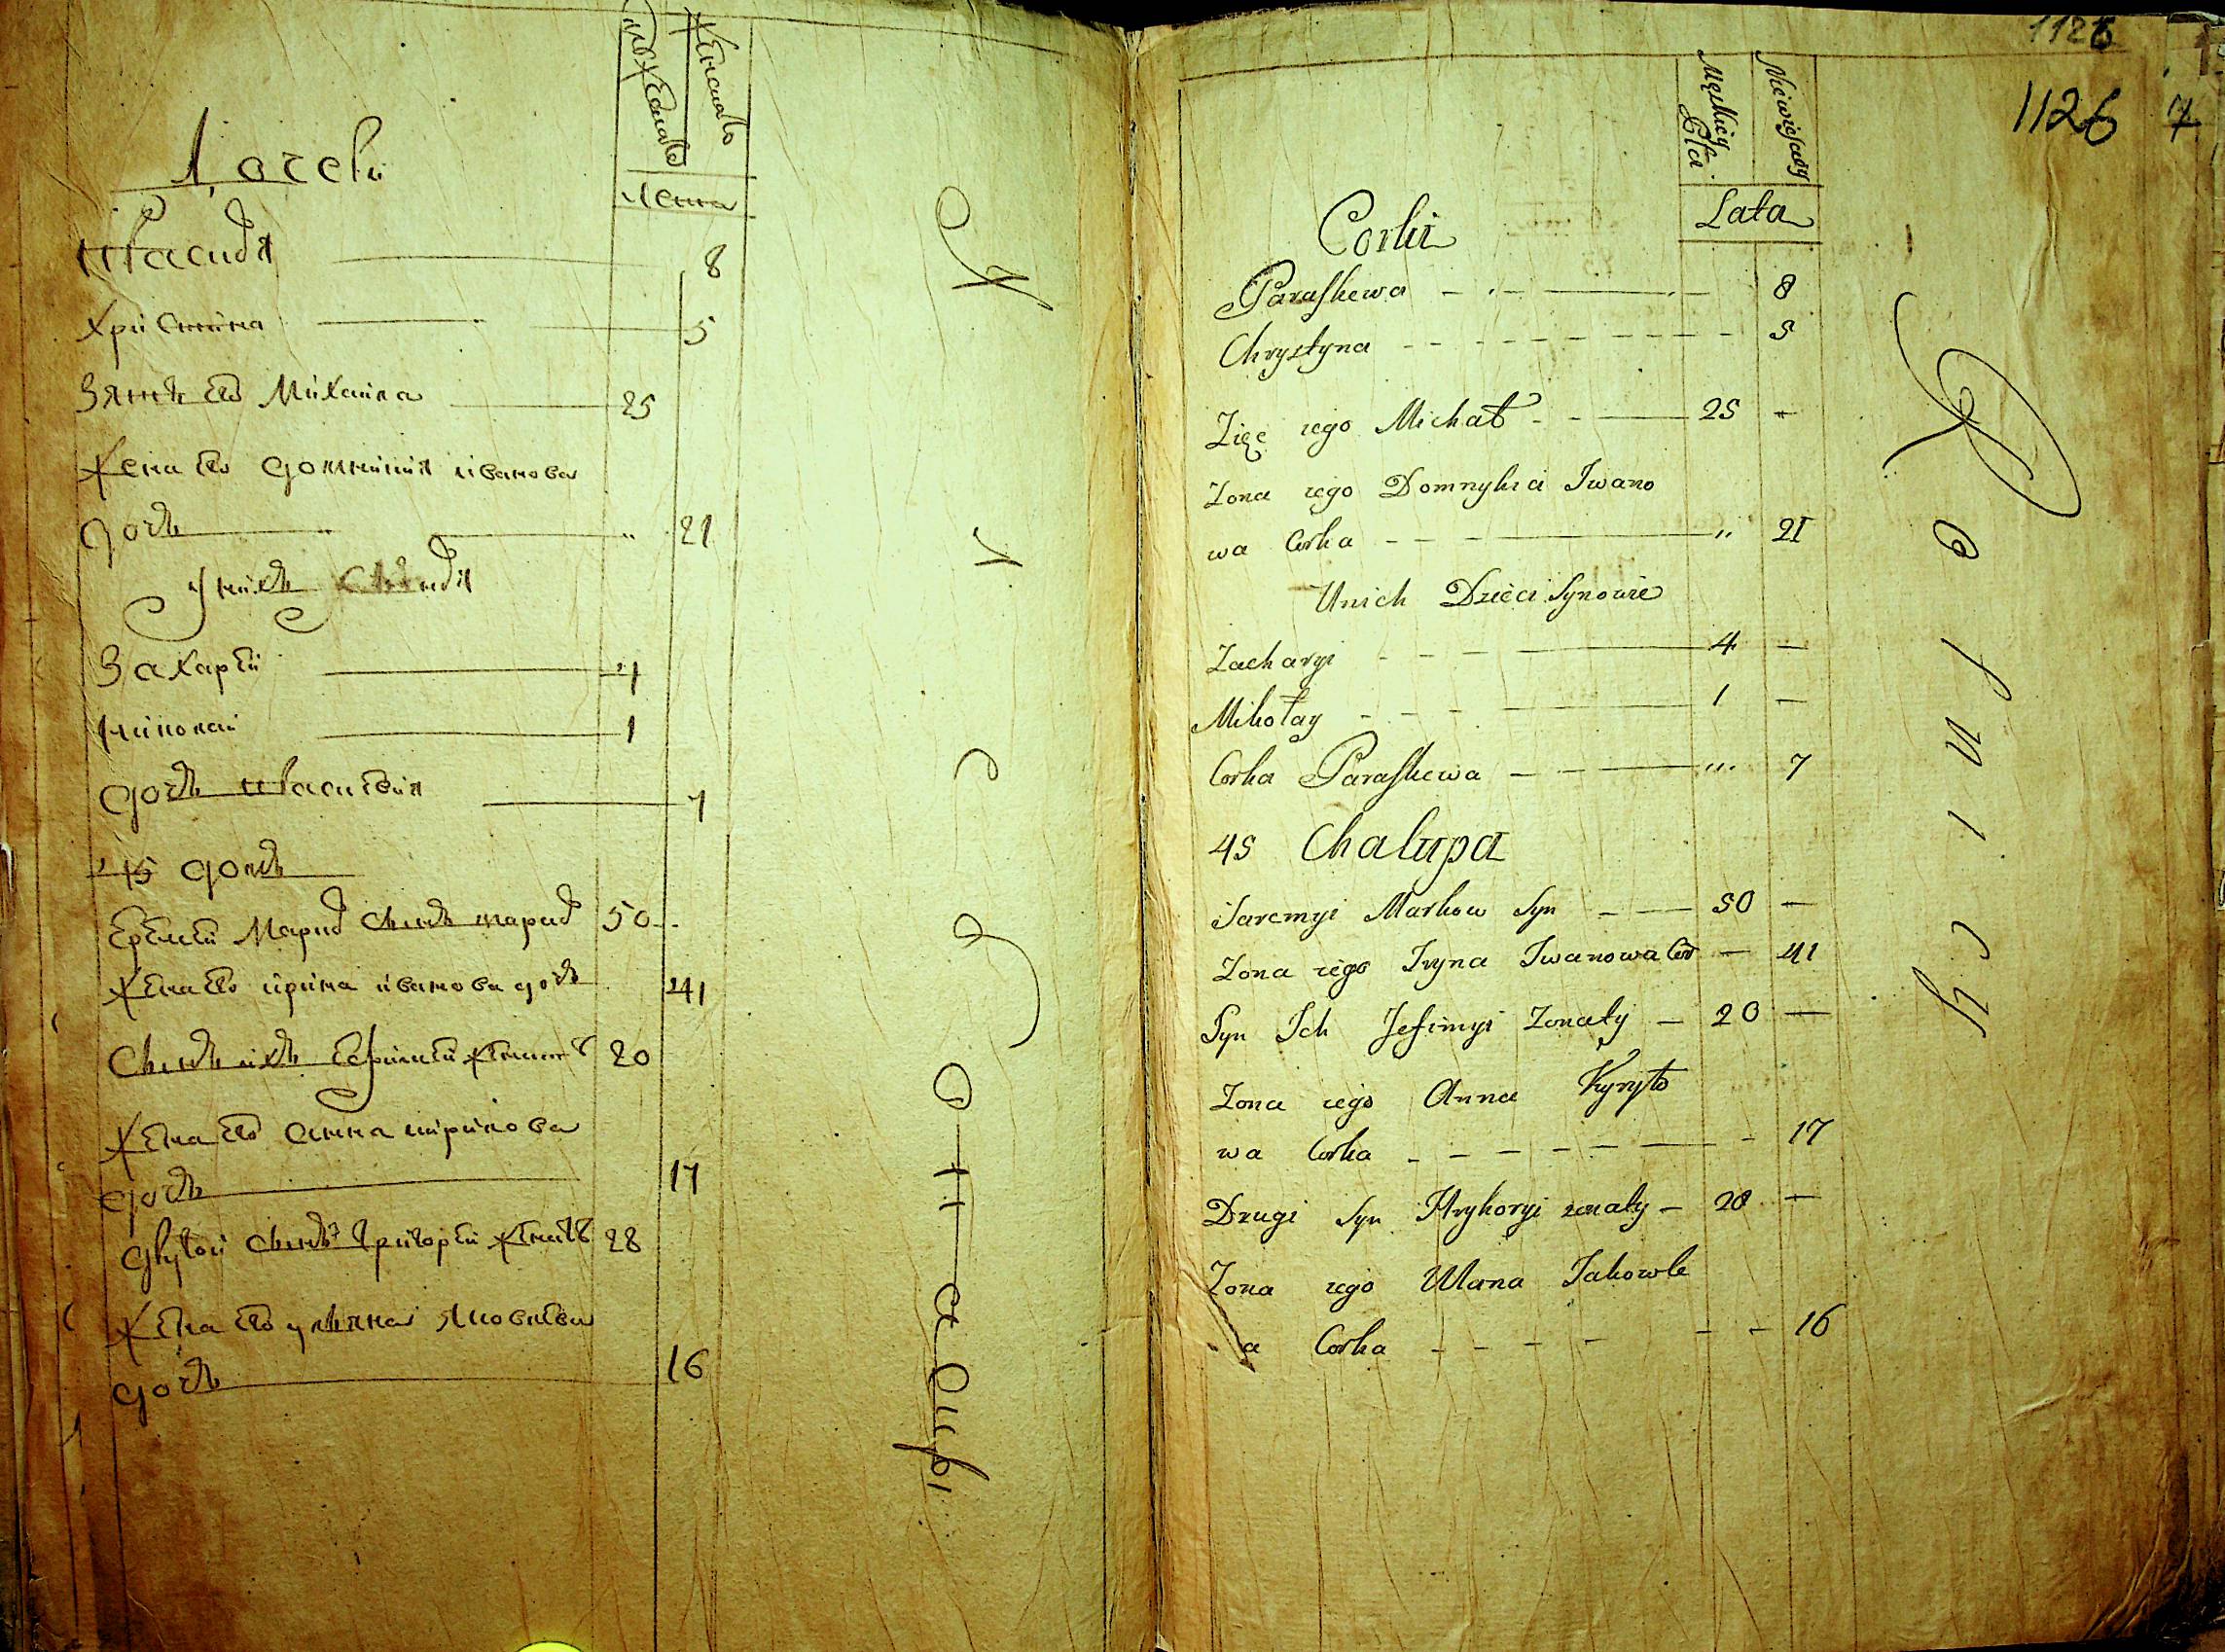 Дочки
8
Христина 5
Зять его Михайла 25
Жена его Домникия иванова
дочь " 21
у нихъ
Захарей 4
николай 1
дочь 7
45 домъ
Еремей Марковъ сынъ 50
Жена его ирина иванова дочь 41
Сынъ ихъ Ефимей женатъ 20
Жена его анна кирилова
дочь 17
другой сынъ григорей женатъ 28
Жена его ульяна яковлева
дочь 16
мужеска
женска
Лета
1126
1126 7
Męskiey Płci
Niewieściey
Lata
Corki
Paraskewa 8
Chrystyna 5
Zięć iego Michał 25 -
Zona iego Domnykia Iwano
wa Corka " 21
Unich Dzieci Synowie
Zacharyi 4 -
Mikołay 1 -
Corka Paraskewa " 7
45 Chalupa
Jaremyi Markow Syn 50 -
Zona iego Iryna Iwanowa Cor - 41
Syn Ich Jefimyi Zonaty - 20 -
Zona iego Anna Kyryło
wa Corka 17
Drugi Syn Hryhoryi zonaty - 28 -
Zona iego Ulana Jakowle
a Corka 16